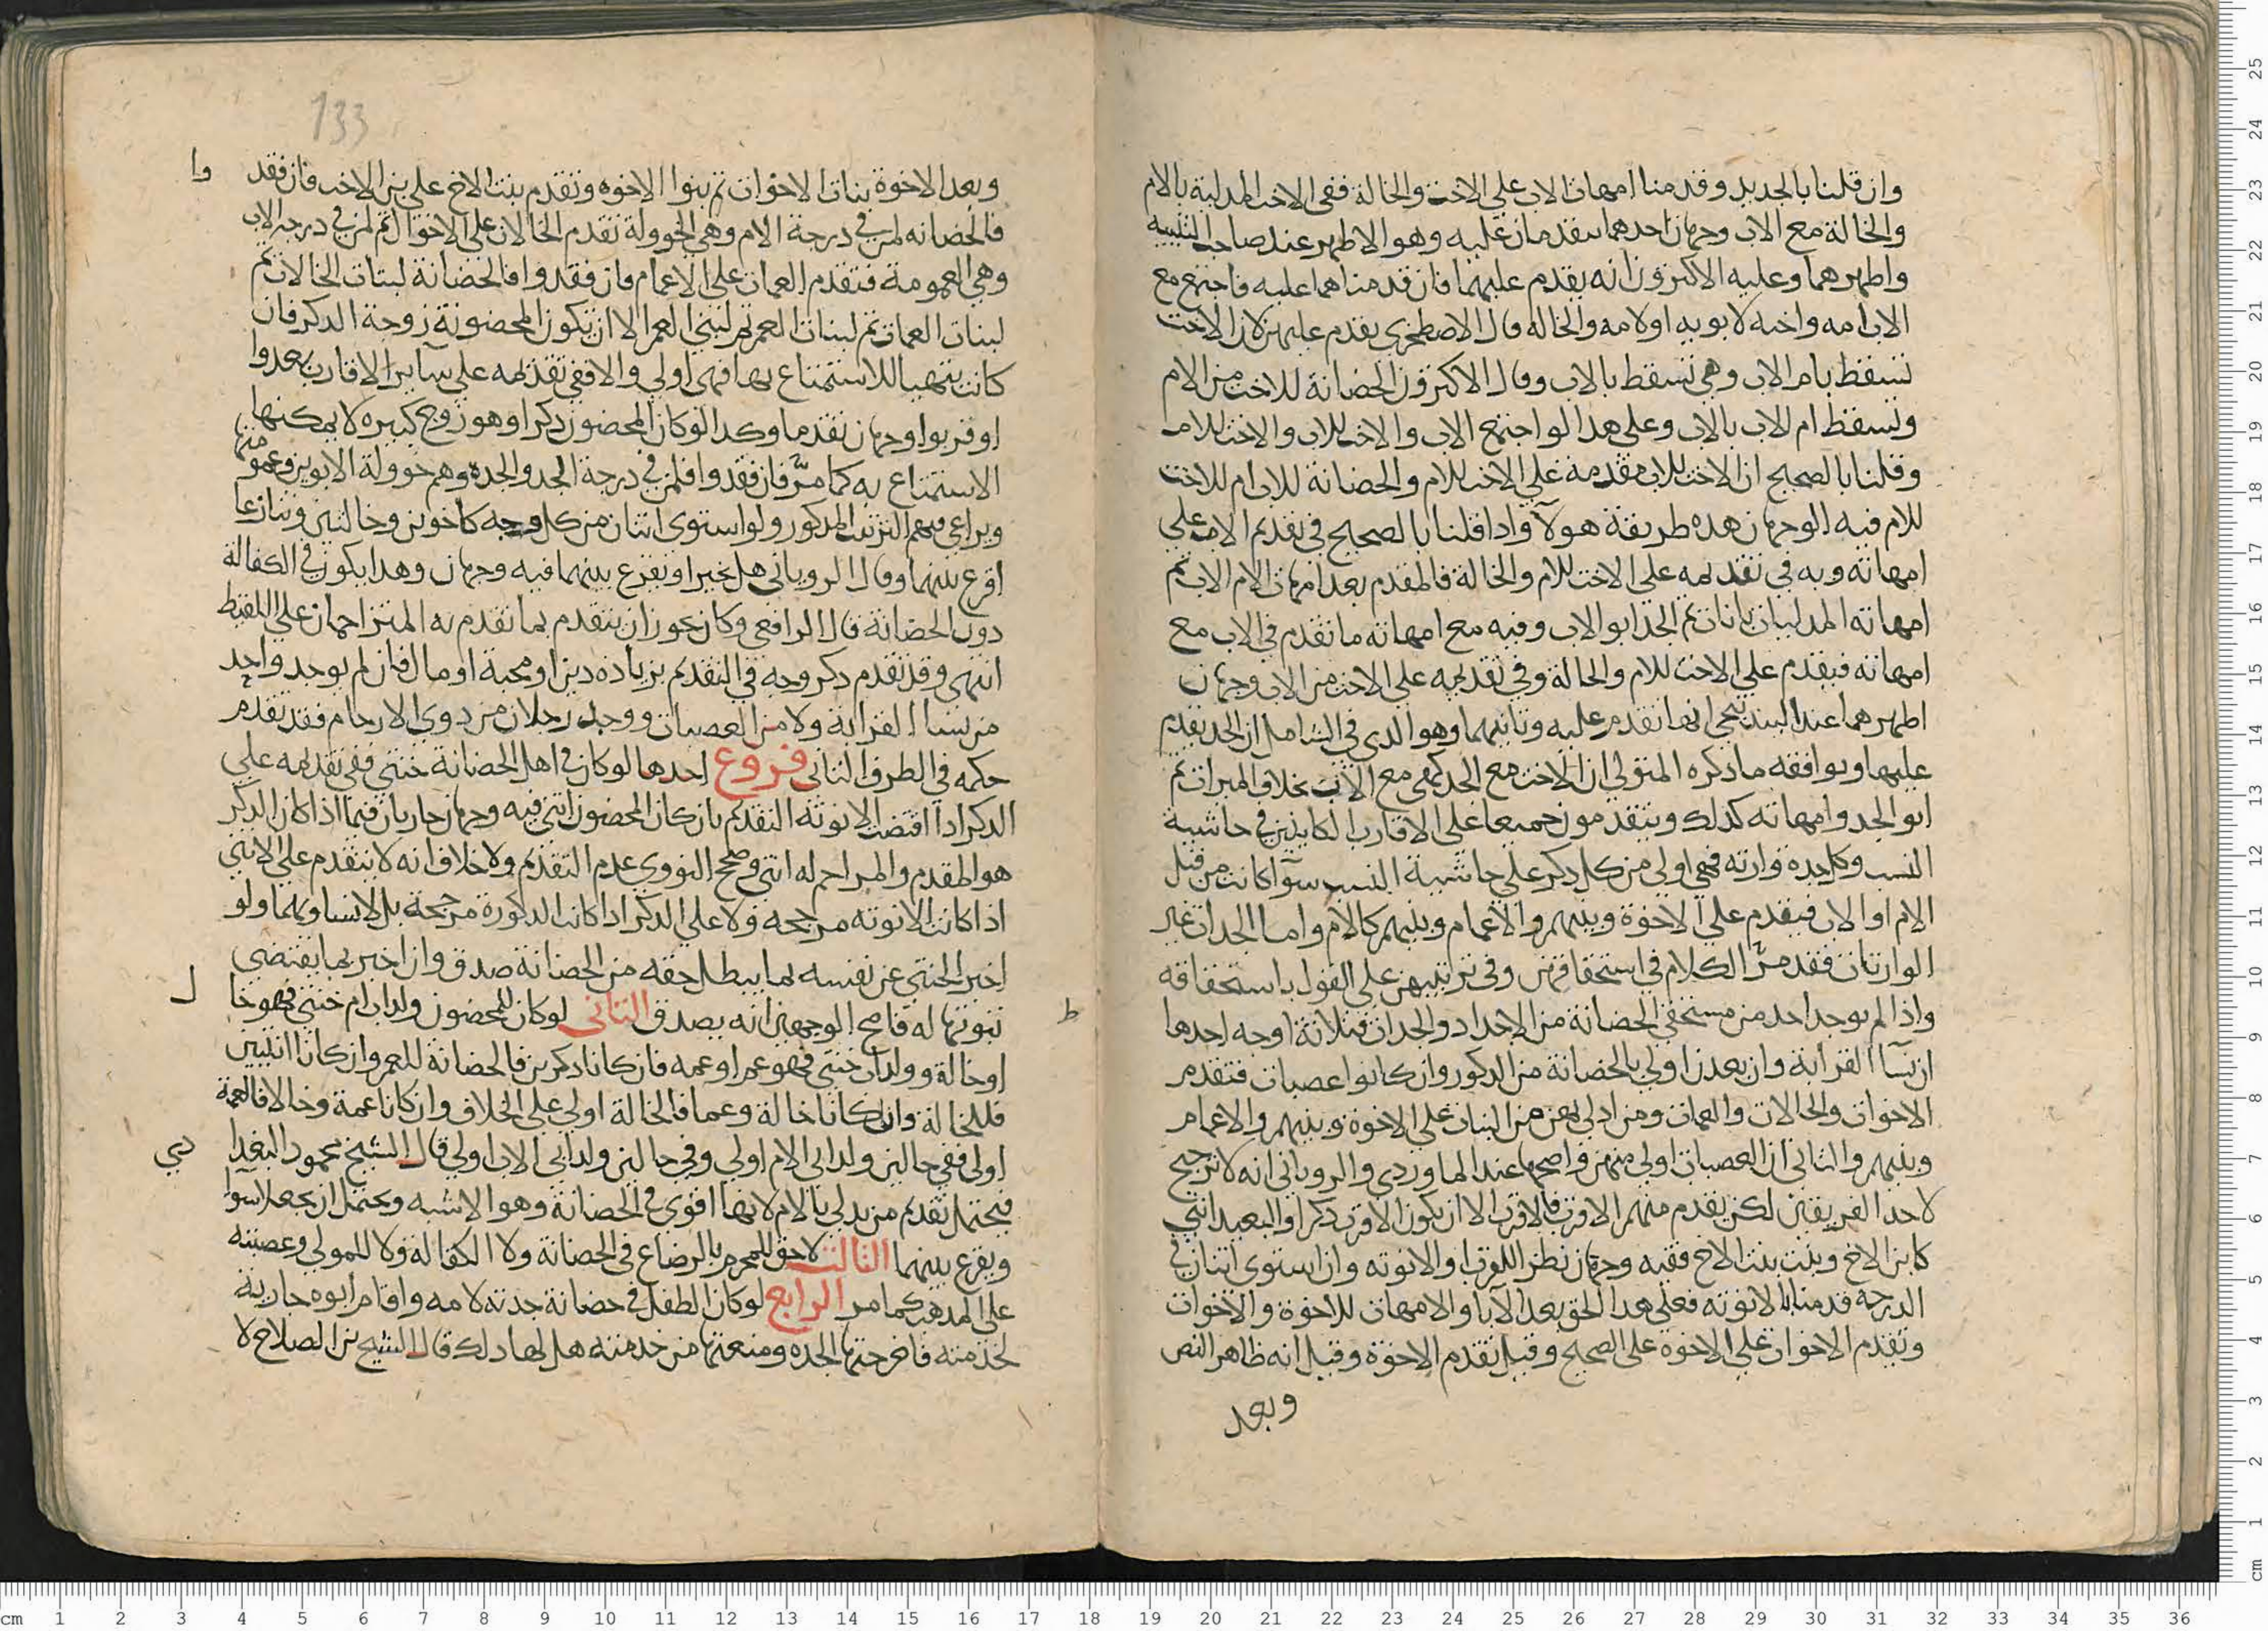 وان قلنا بالجديد وقدمنا امهات الاب على الاخت والخالة ففى الاخت المدلية بالام
والخالة مع الاب وجهان احدهما يتقدمان عليه وهو الاظهر عند صاحب التنبيه
واظهرهما وعليه الاكثرون انه يقدم عليهما فان قدمناهما عليه فاجتمع مع
الاب امه واخته لابويه او لامه والخاله قال الاصطخرى يقدم عليهن لان الاخت
تسقط بام الاب وهى تسقط بالاب وقال الاكثرون الحضانة للاخت من الام
وتسقط ام الاب بالاب وعلى هدا لو اجتمع الاب والاخت للاب والاخت للام
وقلنا بالصحيح ان الاخت للاب مقدمة على الاخت للام والحضانة للاب ام للاخت
للام فيه الوجهان هده طريقة هولآ وادا قلنا بالصحيح فى تقديم الاب على
امهاته وبه فى تقديمه على الاخت للام والخالة فالمقدم بعد امهات الام الاب ثم
امهاته المدليات باناث ثم الجد ابو الاب وفيه مع امهاته ما تقدم فى الاب مع
امهاته فيقدم على الاخت للام والخالة وفى تقديمه على الاخت من الاب وجهان
اظهرهما عند البندنيجى انها تقدم عليه وثانيهما وهو الدى فى الشامل ان الجد يقدم
عليها ويوافقه ما دكره المتولى ان الاخت مع الجد كهى مع الاب بخلاف الميراث ثم
ابو الجد وامهاته كدلك ويتقدمون جميعا على الاقارب الكاينين فى حاشية
النسب وكل جدة وارثه فهى اولى من كل دكر على حاشية النسب سوآ كانت من قبل
الام او الاب فيقدم على الاخوة وبنيهم والاعمام وبنيهم كالام واما الجدات غير
الوارثات فقد مر الكلام فى استحقاقهن وفى ترتيبهن على القول باستحقاقه
واذا لم يوجد احد من مستحقى الحضانة من الاجداد والجدات فثلاثة اوجه احدها
ان نسآ القرابة وان بعدن اولى بالحضانة من الدكور وان كانوا عصبات فتقدم
الاخوات والخالات والعمات ومن ادلى بهن من البنات على الاخوة وبنيهم والاعمام
وبنيهم والثانى ان العصبات اولى منهن واصحها عند الماوردى والرويانى انه لا ترجيح
لاحد الفريقين لكن يقدم منهم الاقرب فالاقرب الا ان يكون الاقرب دكرا والبعيد انثى
كابن الاخ وبنت بنت الاخ ففيه وجهان نظرا للقرب او الانوثه وان استوى اثنان فى
الدرجة قدمنا بالانوثه فعلى هدا الحق بعد الآبا والامهات للاخوة والاخوات
وتقدم الاخوات على الاخوة على الصحيح وقيل تقدم الاخوة وقيل انه ظاهر النص
وبعد
ط
133
وبعد الاخوة بنات الاخوات ثم بنوا الاخوه وتقدم بنت الاخ على بن الاخت فان فقد وا
فالحضانه لمن فى درجة الام وهى الخوولة تقدم الخالات على الاخوال ثم لمن فى درجة الاب
وهى العمومة فتقدم العمات على الاعمام فان فقدوا فالحضانة لبنات الخالات ثم
لبنات العمات ثم لبنات العم ثم لبنى العم الا ان تكون المحضونة زوجة الدكر فان
كانت يتهيا للاستمتاع بها فهى اولى والا ففى تقديمه على سآير الاقارب بعدوا
او قربوا وجهان تقدما وكدا لو كان المحضون دكرا وهو زوج كبيره لا يمكنها
الاستمتاع به كما مر فان فقدوا فلمن فى درجة الجد والجده وهم خوولة الابوين وعمومتها
ويراعى فيهم الترتيب المدكور ولو استوى اثنان من كل وجه كاخوين وخالتين وتنازعا
اقرع بينهما وقال الرويانى هل يخير او يقرع بينهما فيه وجهان وهدا يكون فى الكفالة
دون الحضانة قال الرافعى وكان يجوز ان يتقدم بما تقدم به المتزاحمان على اللقيط
انتهى وقد تقدم دكر وجه فى التقديم بزيادة دين او محبة او مال فان لم يوجد واحد
من نسا القرابة ولا من العصبات ووجد رجلان من دوى الارحام فقد تقدم
حكمه فى الطرف الثانى فروع احدها لو كان فى اهل الحضانة خنثى ففى تقديمه على
الدكر ادا اقتضت الانوثة التقديم بان كان المحضون انثى فيه وجهان جاريان فيما اذا كان الدكر
هو المقدم والمزاحم له انثى وصحح النووى عدم التقديم ولا خلاف انه لا يتقدم على الانثى
اذا كانت الانوثه مرجحه ولا على الدكر ادا كانت الدكورة مرجحة بل لا يساويهما ولو
اخبر الخنثى عن نفسه بما يبطل حقه من الحضانة صدق وان اخبر بما يقتضى
ثبوتها له فاصح الوجهين انه يصدق الثانى لو كان للمحضون ولد اب ام خنثى فهو خا ل
او خالة وولد اب خنثى فهو عم او عمه فان كانا دكرين فالحضانة للعم وان كانا انثيين
فللخالة وان كانا خالة وعما فالخالة اولى على الخلاف وان كانا عمة وخالا فالعمة
اولى ففى حالين ولد ابى الام اولى وفى حالين ولد ابى الاب اولى قال الشيخ محمود البغدا دى
فيحتمل تقديم من يدلى بالام لانها اقوى فى الحضانة وهو الاشبه ويحتمل ان يجعلا سوآ
ويقرع بينهما الثالث لا حق للمحرم بالرضاع فى الحضانة ولا الكفالة ولا للمولى وعصبته
على المدهب كما مر الرابع لو كان الطفل فى حضانة جدته لامه واقام ابوه جارية
لخدمته فاخرجتها الجده ومنعتها من خدمته هل لها دلك قال الشيخ بن الصلاح لا